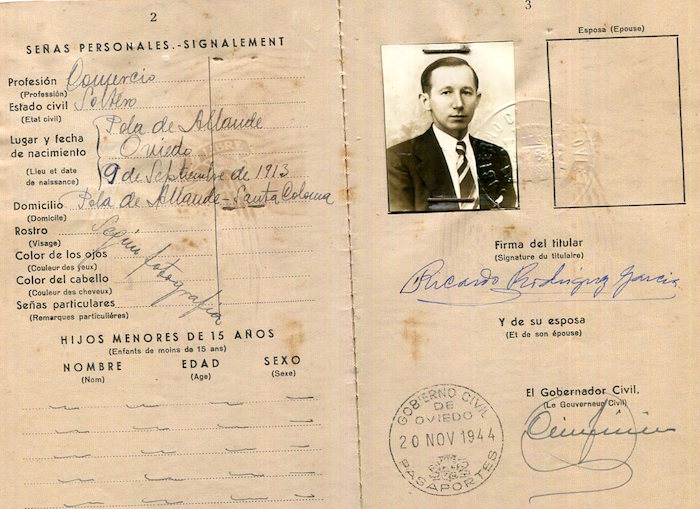 2
SEÑAS PERSONALES.-SIGNALEMENT
Profesión Comercio
(Profession)
Estado civil Soltero
(Etat civil)
Lugar y fecha Pola de Allande
de nacimiento Oviedo
(Lieu et date
de naissance) 9 de Septiembre de 1913
Domicilio Pola de Allande-Santa Coloma
(Domicile)
Rostro
(Visage)
Color de los ojos
(Couleur des yeux)
Color del cabello
(Couleur des cheveux)
Señas particulares
(Remarques particulières)
Según fotografía
HIJOS MENORES DE 15 AÑOS
(Enfants de moins de 15 ans)
NOMBRE EDAD SEXO
(Nom) (Age) (Sexe)
3
Esposa (Epouse)
Firma del titular
(Signature du titulaire)
Ricardo Rodriguez Garcia
Y de su esposa
(Et de son épouse)
El Gobernador Civil,
(Le Gouverneur Civil)
GOBIERNO CIVIL
DE
OVIEDO
20 NOV 1944
PASAPORTES